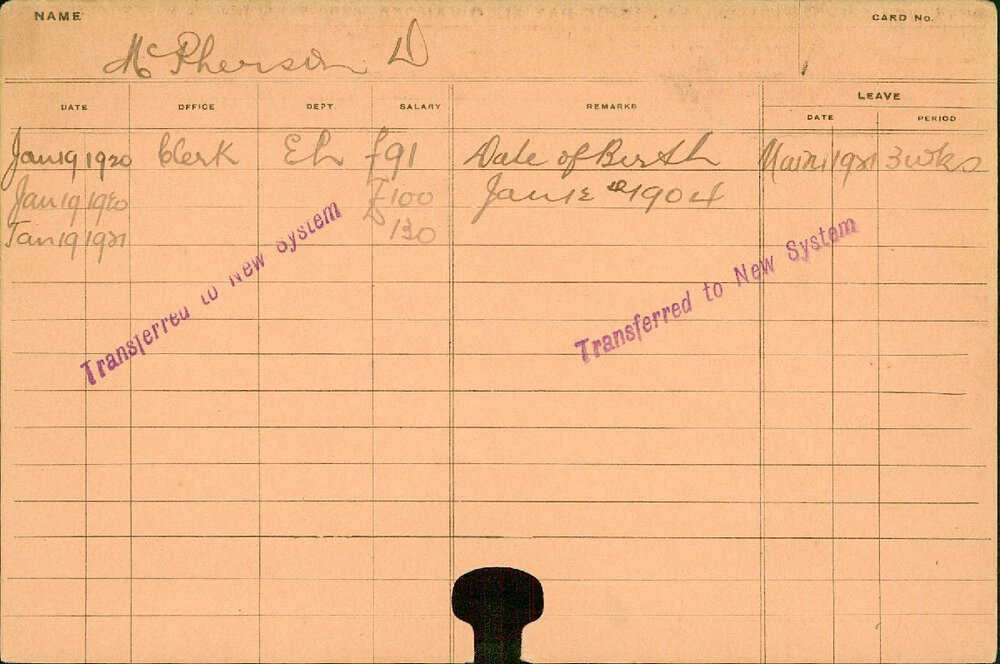 NAME CARD No.
McPherson D
DATE OFFICE DEPT. SALARY REMARKS LEAVE
DATE PERIOD
Jan 19 1920 Clerk Eh £91 Date of Birth 1921 3 wks
Jan 19 1920 £100 Jan 12th 1904
Jan 19 1921 £130
Transferred to New System
Transferred to New System